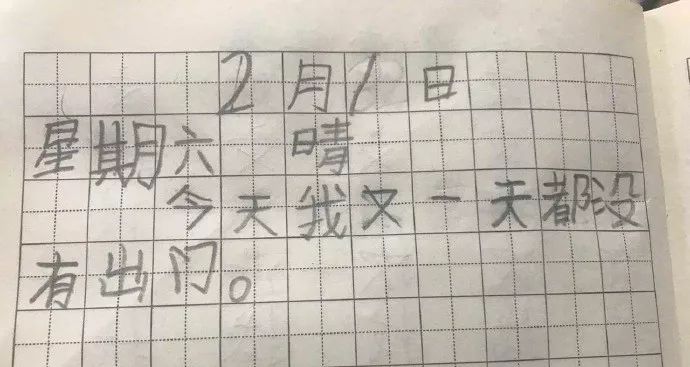 2月1日
星期六 晴
今天我又一天都没
有出门。